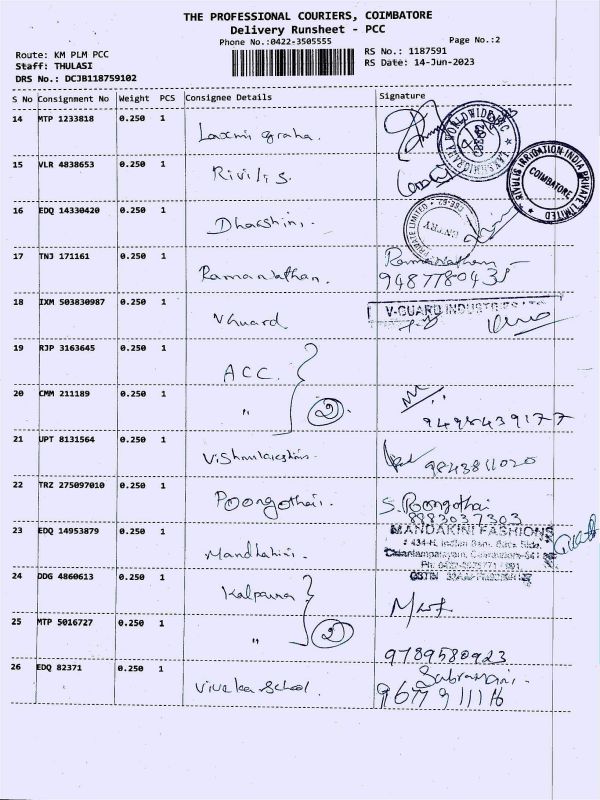 THE PROFESSIONAL COURIERS, COIMBATORE
Delivery Runsheet - PCC
Phone No.:0422-3505555
Page No.:2
Route: KM PLM PCC
Staff: THULASI
DRS No.: DCJB118759102
RS No.: 1187591
RS Date: 14-Jun-2023
S No Consignment No Weight PCS Consignee Details Signature
14 MTP 1233818 0.250 1 Laxmi graha.
15 VLR 4838653 0.250 1 Rivilis.
RIVULIS IRRIGATION INDIA PRIVATE LIMITED
COIMBATORE
16 EDQ 14330420 0.250 1 Dhacshini.
PRIVATE LIMITED
ENTRY
17 TNJ 171161 0.250 1 Ramanathan. Ramanathan
9487780435
18 IXM 503830987 0.250 1 V Guard
V-GUARD INDUSTRIES LTD
19 RJP 3163645 0.250 1 ACC.
20 CMM 211189 0.250 1 " 2
9498439177
21 UPT 8131564 0.250 1
9843811020
22 TRZ 275097010 0.250 1 Poongothai. S. Poongothai
8883037303
23 EDQ 14953879 0.250 1 Mandhakini.
MANDAKINI FASHIONS
24 DDG 4860613 0.250 1 Kalpana
25 MTP 5016727 0.250 1 " 2
9789580923
26 EDQ 82371 0.250 1 Viveka School. Subramani.
9677911116